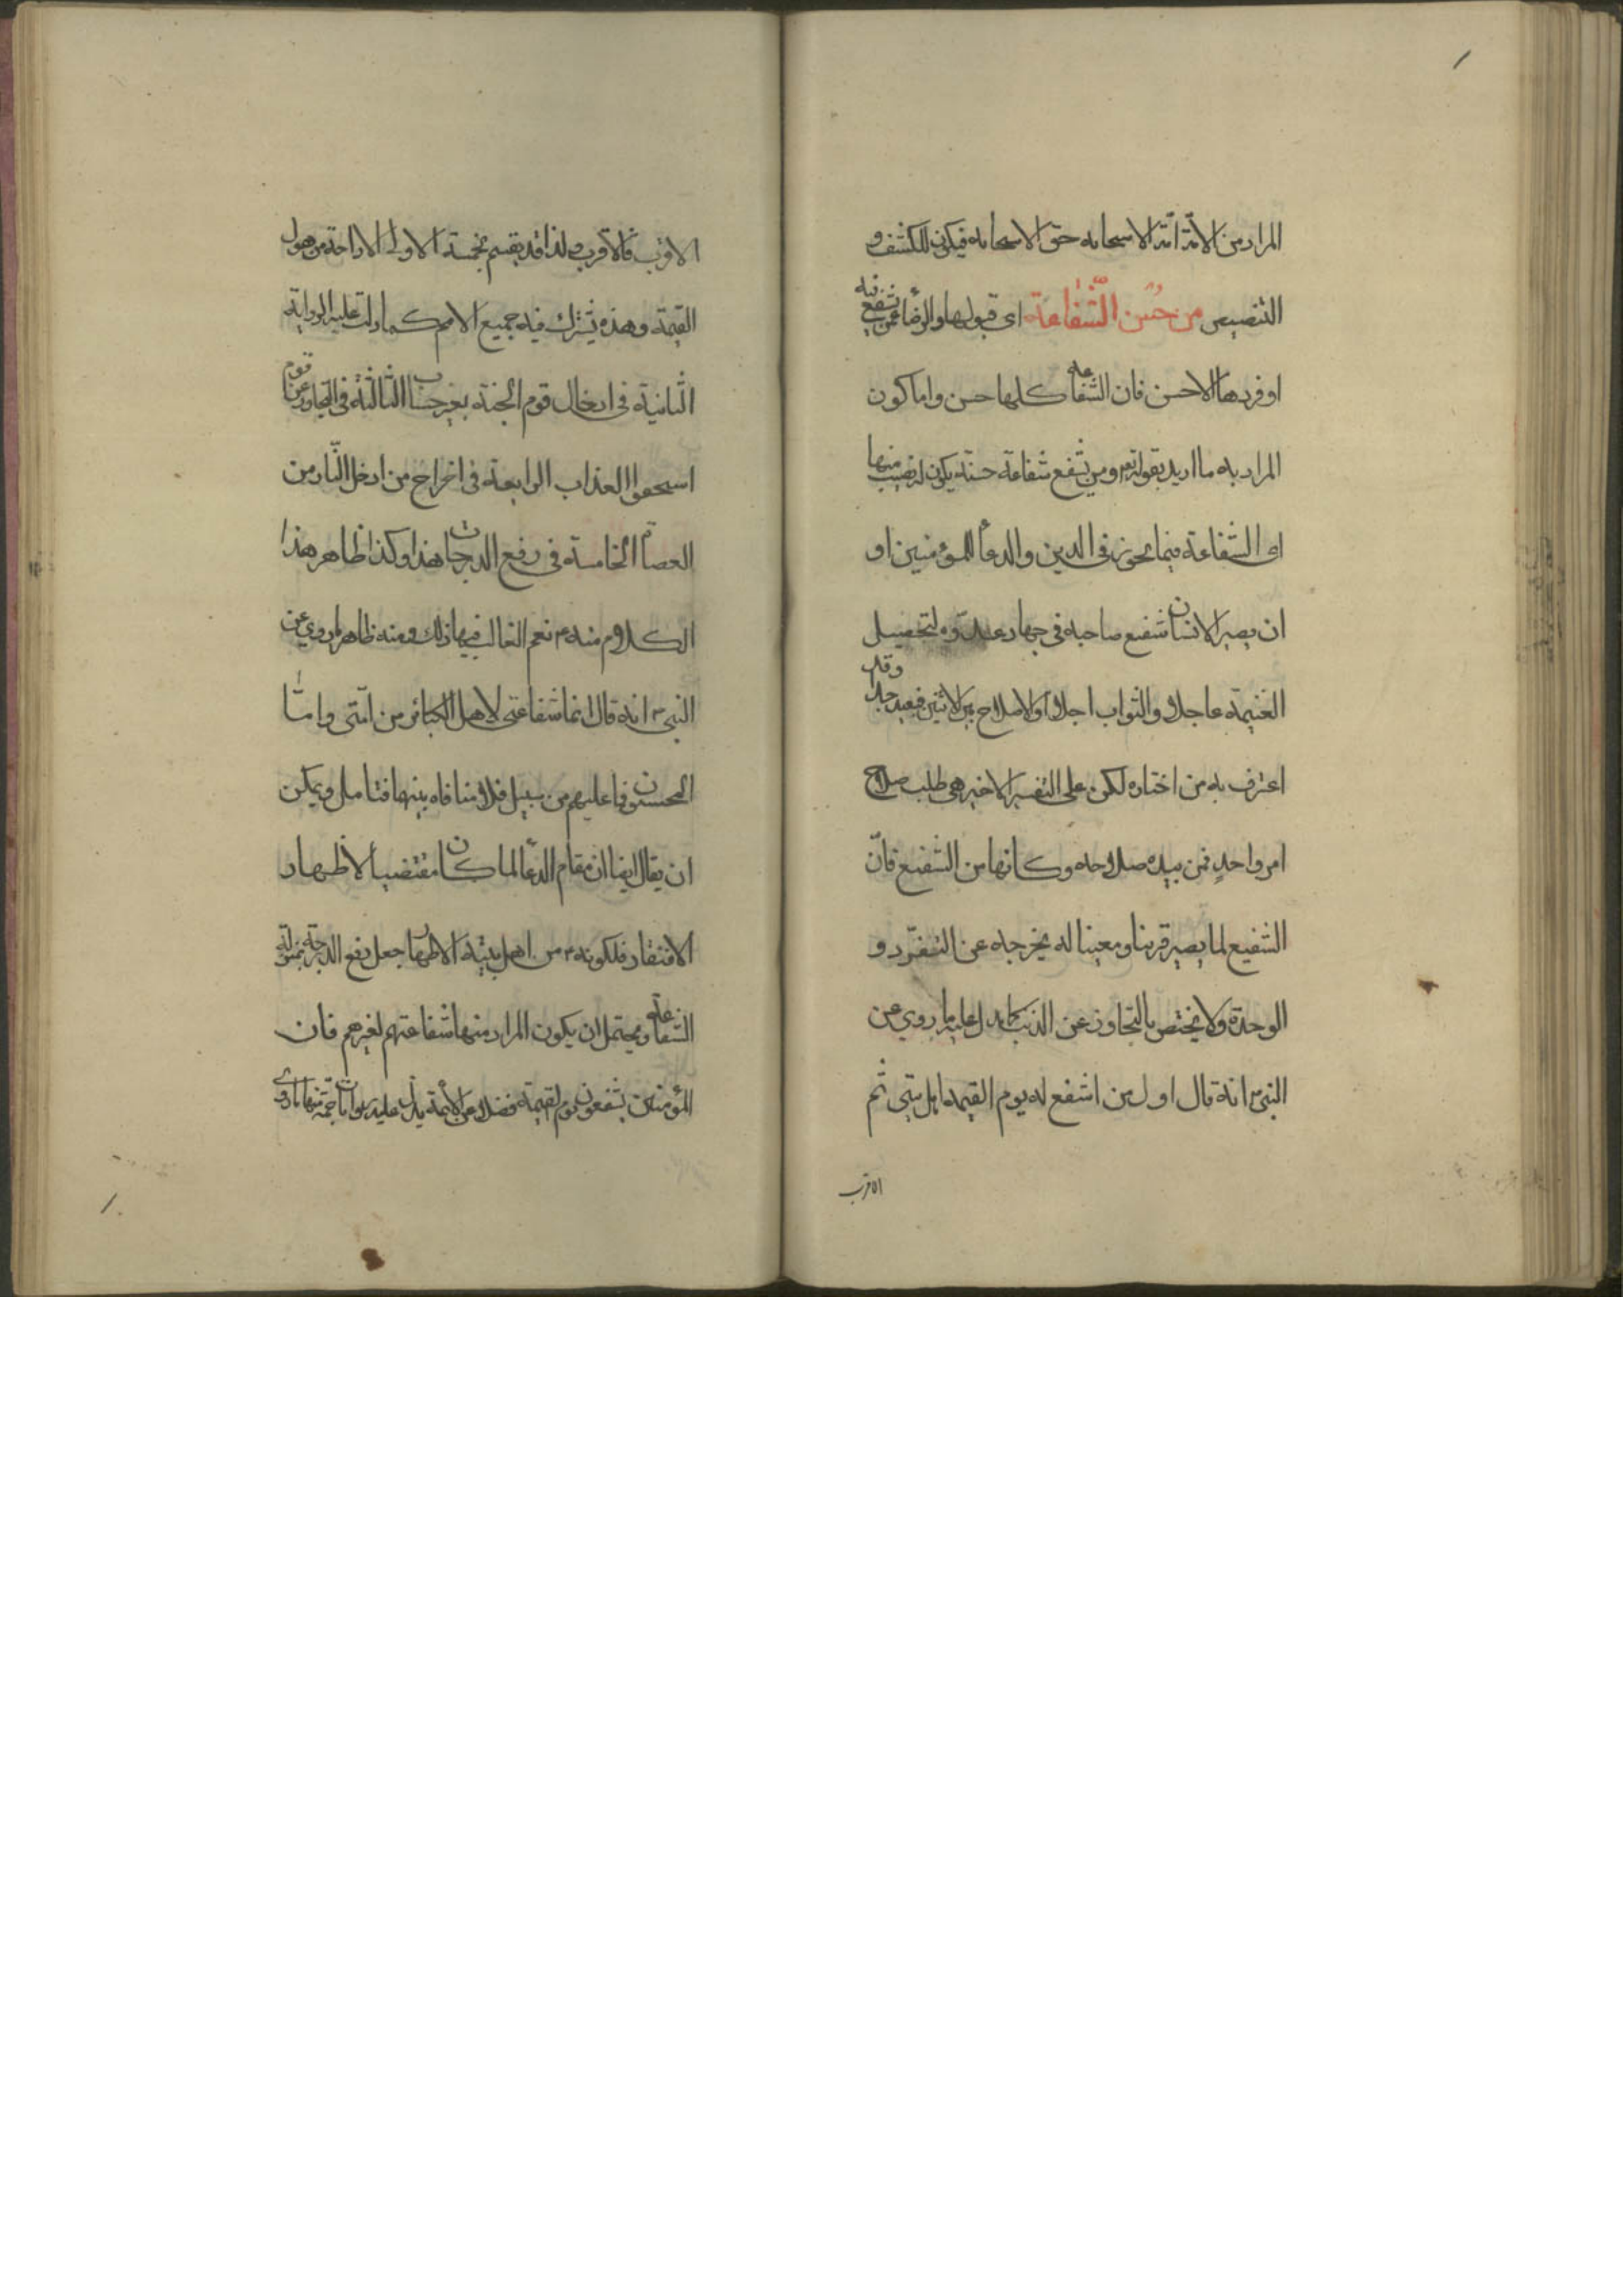 المراد من الامة امة الاستجابة حق الاستجابة فيكون للكشف و
التنصيص من حُسن الشّفاعَة اى قبولها والرضأ عمن تشفع فيه
او فردها الاحسن فان الشفاعة كلها حسن واما كون
المراد به ما اريد بقوله تعم ومن يشفع شفاعة حسنة يكون له نصيب منها
اى الشفاعة فيما يجوز فى الدين والدعأ للمؤمنين او
ان يصير الانسان شفيع صاحبه فى جهاد عدوّه لتحصيل
الغنيمة عاجلا والثواب اجلا او الاصلاح بين الاثنين فبعيد جدا وقد
اعترف به من اختاره لكن على التفسير الاخير هى طلب صلاح
امر واحدٍ ممن بيده صلاحه وكانها من الشفيع فانّ
الشفيع لما يصير قرينا ومعينا له يخرجه عن التفرّد و
الوحدة ولا يختص بالتجاوز عن الذنب كما يدل عليه ما روي عن
النبى ص انه قال اول من اشفع له يوم القيمة اهل بيتى ثم
الاقرب
الاقرب فالاقرب ولذا قد يقسم بخمسة الاولى الاراحة من هول
القيمة وهذه يشترك فيه جميع الامم كما دلت عليه الرواية
الثانية فى ادخال قوم الجنة بغير حساب الثالثة فى التجاوز عن قوم
استحقوا العذاب الرابعة فى اخراج من ادخل النار من
العصاة الخامسة فى رفع الدرجات هذا وكذا ظاهر هذا
الكلام منه ع نعم الغالب فيها ذلك ومنه ظاهر ما روي عن
النبى ص انه قال انما شفاعتى لاهل الكبائر من امتى وامّا
المحسنون فما عليهم من سبيل فلا منافاه بينها فتامل ويمكن
ان يقال ايضا ان مقام الدعأ لما كان مقتضيا لاظهار
الافتقار فلكونه ع من اهل بيته الاطهار جعل رفع الدرجة بمنزلة
الشفاعة ويحتمل ان يكون المراد منها شفاعتهم لغيرهم فان
المؤمنين يشفعون يوم القيمة فضلا عن الائمة يدل عليه روايات جمة منها ما روى